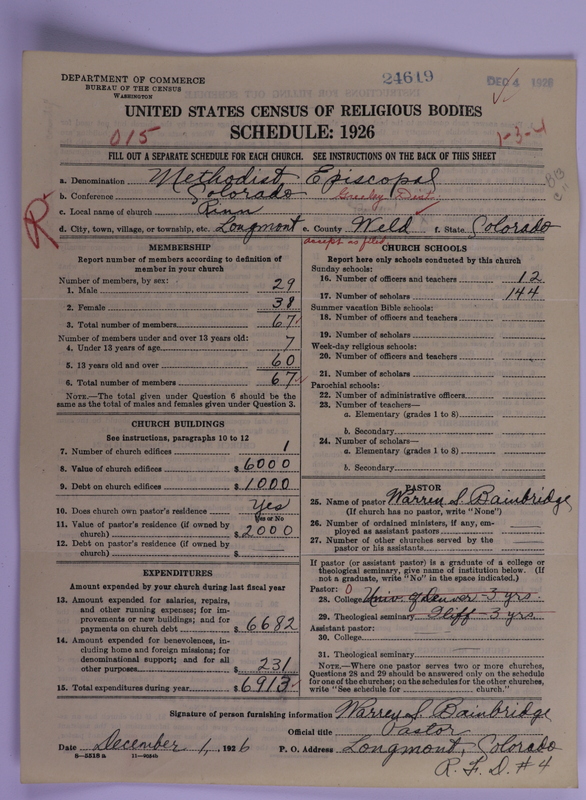 DEPARTMENT OF COMMERCE
BUREAU OF THE CENSUS
WASHINGTON
24619
DEC 4 1926
UNITED STATES CENSUS OF RELIGIOUS BODIES
SCHEDULE: 1926
015
1-3-4
FILL OUT A SEPARATE SCHEDULE FOR EACH CHURCH. SEE INSTRUCTIONS ON THE BACK OF THIS SHEET
a. Denomination Methodist Episcopal
b. Conference Colorado Greeley Dist.
c. Local name of church Rinn
R
d. City, town, village, or township, etc. Longmont e. County Weld f. State Colorado
accept as filed
MEMBERSHIP
Report number of members according to definition of member in your church
Number of members, by sex:
1. Male 29
2. Female 38
3. Total number of members 67
Number of members under and over 13 years old:
4. Under 13 years of age 7
5. 13 years old and over 60
6. Total number of members 67
NOTE.—The total given under Question 6 should be the
same as the total of males and females given under Question 3.
CHURCH BUILDINGS
See instructions, paragraphs 10 to 12
7. Number of church edifices 1
8. Value of church edifices $ 6000
9. Debt on church edifices $ 1000
10. Does church own pastor's residence Yes
Yes or No
11. Value of pastor's residence (if owned by
church) $ 2000
12. Debt on pastor's residence (if owned by
church) $
EXPENDITURES
Amount expended by your church during last fiscal year
13. Amount expended for salaries, repairs,
and other running expenses; for im-
provements or new buildings; and for
payments on church debt $ 6682
14. Amount expended for benevolences, in-
cluding home and foreign missions; for
denominational support; and for all
other purposes $ 231
15. Total expenditures during year $ 6913
CHURCH SCHOOLS
Report here only schools conducted by this church
Sunday schools:
16. Number of officers and teachers 12
17. Number of scholars 144
Summer vacation Bible schools:
18. Number of officers and teachers
19. Number of scholars
Week-day religious schools:
20. Number of officers and teachers
21. Number of scholars
Parochial schools:
22. Number of administrative officers
23. Number of teachers—
a. Elementary (grades 1 to 8)
b. Secondary
24. Number of scholars—
a. Elementary (grades 1 to 8)
b. Secondary
PASTOR
25. Name of pastor Warren S. Bainbridge
(If church has no pastor, write "None")
26. Number of ordained ministers, if any, em-
ployed as assistant pastors
27. Number of other churches served by the
pastor or his assistants
If pastor (or assistant pastor) is a graduate of a college or
theological seminary, give name of institution below. (If
not a graduate, write "No" in the space indicated.)
Pastor: 0
28. College Univ. of Denver - 3 yrs.
29. Theological seminary Iliff - 3 yrs.
Assistant pastor:
30. College
31. Theological seminary
NOTE.—Where one pastor serves two or more churches,
Questions 28 and 29 should be answered only on the schedule
for one of the churches; on the schedules for the other churches,
write "See schedule for church."
Signature of person furnishing information Warren S. Bainbridge
Official title Pastor
Date December 1, 1926 P. O. Address Longmont, Colorado
8—5518 a 11—9054b
R. F. D. #4